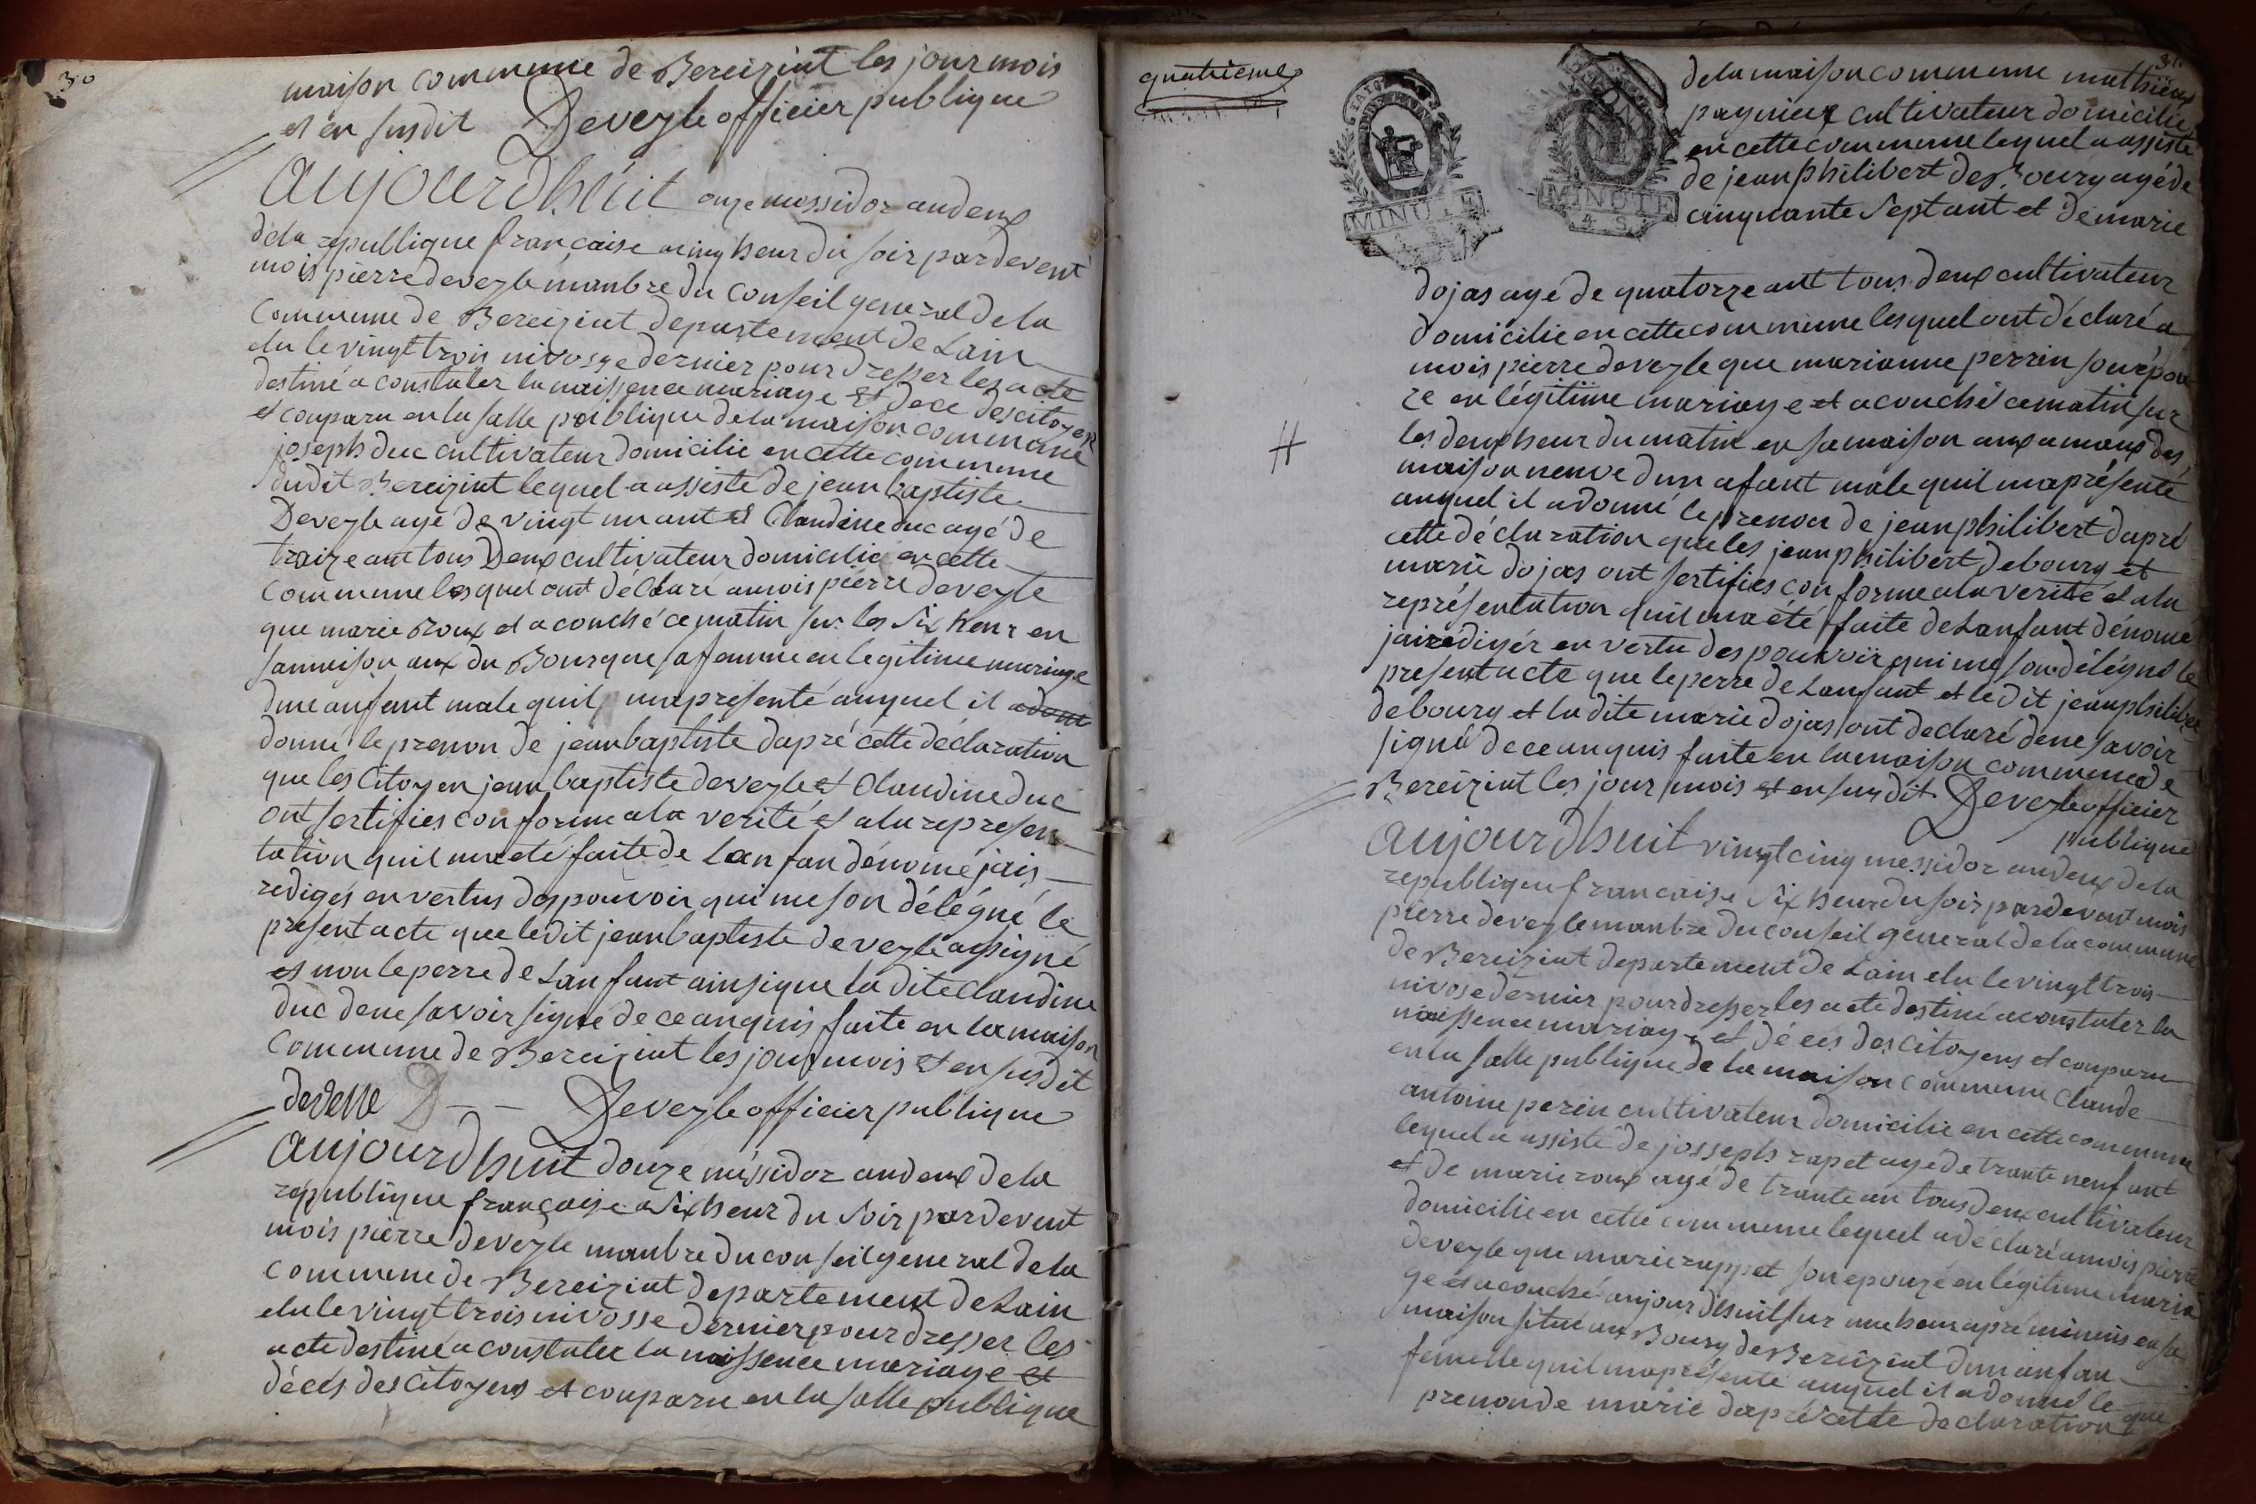 30
maison commune de Bereiziat les jour mois
et en susdit Deveyle officier publique
aujourdhuit onze messidor an deux
de la republique francaise a cinq heur du soir pardevent
mois pierre deveyle manbre du conseil general de la
commune de Bereiziat departement de Lain
elu le vingt trois nivosse dernier pour dresser les acte
destiné a constater la naissence mariage et dece des citoyen
et conparu en la salle publique de la maison commune
joseph duc cultivateur domicilie en cette commune
dudit Bereiziat lequel a assisté de jean baptiste
Deveyle agé de vingt un ant et Claudine duc agé de
traize ant tous Deux cultivateur domicilie en cette
commune lesquel ont déclaré a mois pierre deveyle
que marie roux et a couché ce matin sur les Six heur en
sa maison aux du Bourg que sa femme en legitime mariage
dun anfant male quil ma présenté auquel il adont
donné le prenon de jean baptiste dapré cette déclaration
que les Citoyen jean baptiste deveyle et Claudine duc
ont sertifies conforme a la verité et a la represen
tation quil ma été faite de Lanfan dénomé jais
redigés en vertus des pouvoir qui me son délégué le
présent acte que ledit jean baptiste deveyle a signé
et non le perre de Lanfant ainsi que la dite Claudine
duc de ne savoir signé de ce anquis faite en la maison
commune de Bereiziat les jour mois et en susdit
develle D Deveyle officier publique
aujourdhuit douze méssidor an deux de la
république françaisse a Six heur du soir pardevent
mois pierre deveyle manbre du conseil general de la
commune de Bereiziat departement de Lain
elu le vingt trois nivosse dernier pour dresser les
acte destiné a constater la naissence mariage et
décés des citoyens et conparu en la salle publique
quatrieme
MINUTE
MINUTE
31
de la maison commune mathieu
pagnieux cultivateur domicilie
en cette commune lequel a assisté
de jean philibert de Bourg agé de
cinquante Sept ant et De marie
dojas agé de quatorze ant tous deux cultivateur
domicilie en cette commune lesquel ont déclaré a
mois pierre deveyle que marianne perrin son épou
ze en légitime mariage et a couché ce matin sur
les deux heur du matin en sa maison aux amaux des
maison neuve dun afant male quil ma présenté
auquel il a donné le prenon de jean philibert dapré
cette déclaration que les jean philibert debourg et
marie dojas ont sertifies conforme a la verité et a la
représentation quil ma été faite de Lanfant dénomé
jai redigér en vertu des pouvoir qui me son délégué le
présent acte que le perre de Lanfant et le dit jean philiber
debourg et la dite marie dojas ont declaré de ne savoir
signé de ce anquis faite en la maison commune de
Bereiziat les jour mois et en susdit Deveyle officier
publique
aujourdhuit vingt cinq messidor an deux de la
republique francaise Six heur du soir pardevant mois
pierre deveyle manbre du conseil general de la commune
de Bereiziat departement de Lain elu le vingt trois
nivose dernier pour dresser les acte destiné a constater la
naissence mariage et déces des citoyens et conparu
en la salle publique de la maison commune Claude
antoine perin cultivateur domicilie en cette commune
lequel a assisté de josseph rapet agé de trante neuf ant
et de marie roux agé de trante an tous deux cultivateur
domicilie en cette commune lequel a déclaré a mois pierre
deveyle que marie rappet son epouzé en légitime maria
ge et a couché aujourdhuit sur une heur apré minuis en sa
maison situé aux Bourg de Bereiziat dun anfan
femelle quil ma présenté auquel il a donné le
prenon de marie dapré cette declaration que